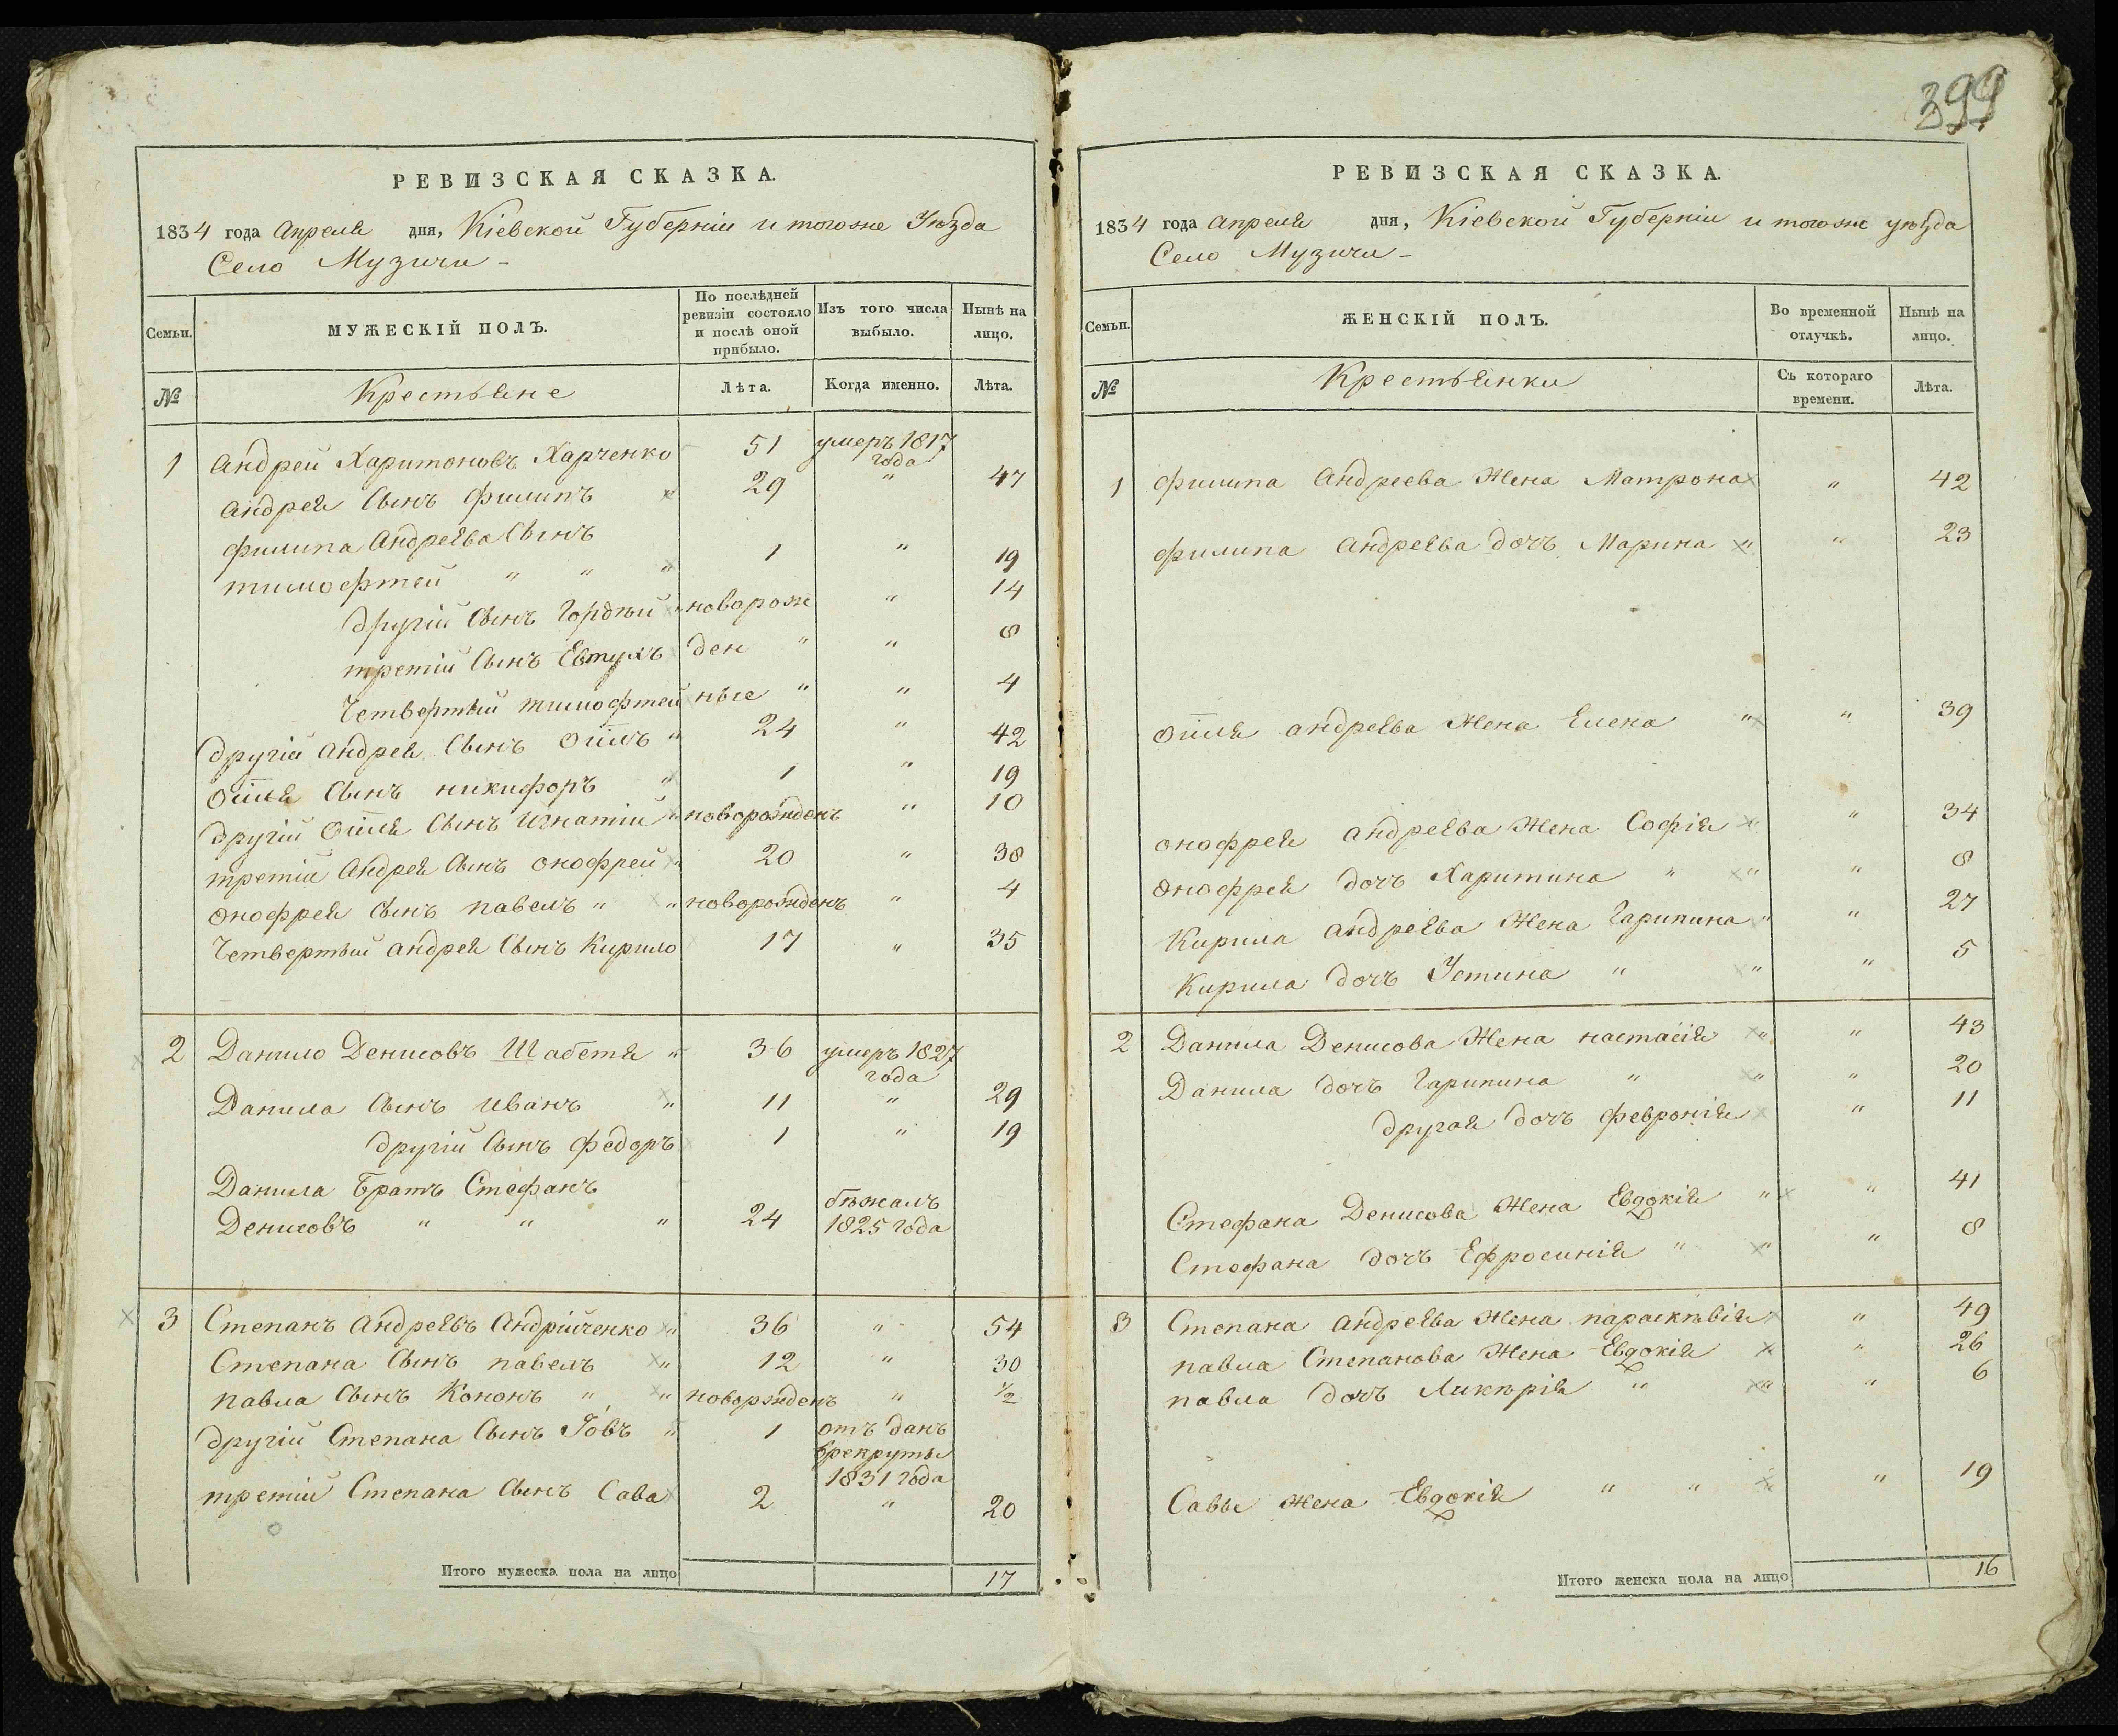 399
РЕВИЗСКАЯ СКАЗКА.
1834 года Апреля дня, Кіевской Губерніи и тогоже Уѣзда
Село Музичи -
Семьи.
МУЖЕСКІЙ ПОЛЪ.
По послѣдней ревизіи состояло и послѣ оной прибыло.
Изъ того числа выбыло.
Нынѣ на лицо.
№ Крестьяне Лѣта. Когда именно. Лѣта.
1 Андрей Харитоновъ Харченко 51 умеръ 1817 года
Андрея Сынъ Филипъ " 29 " 47
Филипа Андреева Сынъ
тимофтей " " " 1 " 19
другій Сынъ Гордѣй " новорож " 14
третій Сынъ Евтухъ ден " " 8
Четвертый тимофтей ные " " 4
другій Андрея Сынъ " 24 " 42
Сынъ никифоръ " 1 " 19
другій Сынъ Игнатій " новорожденъ " 10
третій Андрея Сынъ онофрей " 20 " 38
онофрея Сынъ павелъ " " новорожденъ " 4
Четвертый андрея Сынъ Кирило 17 " 35
2 Данило Денисовъ Шабетя " 36 умеръ 1827 года
Данила Сынъ Иванъ " 11 " 29
другій Сынъ Федоръ 1 " 19
Данила Братъ Стефанъ
Денисовъ " " " 24 бѣжалъ 1825 года
3 Степанъ Андреевъ Андрійченко " 36 " 54
Степана Сынъ павелъ " 12 " 30
павла Сынъ Кононъ " " новорожденъ " 1/2
другій Степана Сынъ Іовъ " 1 отъ данъ
врекруты
1831 года
третій Степана Сынъ Сава 2 " 20
Итого мужеска пола на лицо 17
РЕВИЗСКАЯ СКАЗКА.
1834 года Апреля дня, Кіевской Губерніи и тогоже уѣзда
Село Музичи -
Семьи.
ЖЕНСКІЙ ПОЛЪ.
Во временной отлучкѣ.
Нынѣ на лицо.
№ Крестьянки Съ котораго времени. Лѣта.
1 Филипа Андреева Жена Матрона " 42
Филипа Андреева дочъ Марина " " 23
андреева Жена Елена " " 39
онофрея андреева Жена Софія " 34
онофрея дочъ Харитина " " " 8
Кирила андреева Жена Гарпина " " 27
Кирила дочъ Устина " " " 5
2 Данила Денисова Жена настасія " " 43
Данила дочъ Гарпина " " " 20
другая дочъ Февронія " 11
Стефана Денисова Жена Евдокія " " 41
Стефана дочъ Ефросинія " " " 8
3 Степана Андреева Жена параскѣвія " 49
павла Степанова Жена Евдокія " 26
павла дочъ Ликѣрія " " " 6
Саввы жена Евдокія " " " 19
Итого женска пола на лицо 16